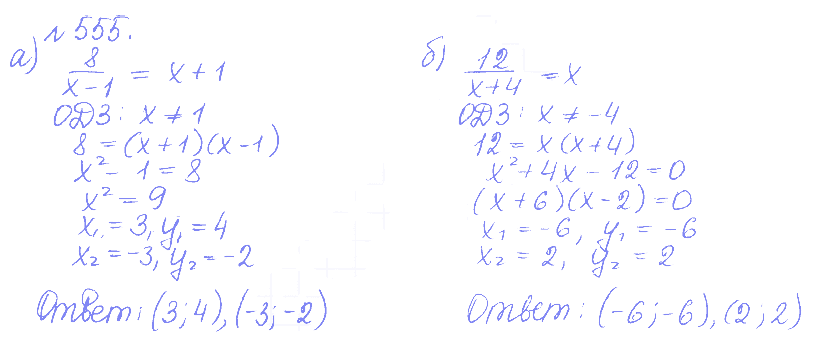 № 555.
а) 8/(x-1) = x+1
ОДЗ: x ≠ 1
8 = (x+1)(x-1)
x² - 1 = 8
x² = 9
x₁ = 3, y₁ = 4
x₂ = -3, y₂ = -2
Ответ: (3; 4), (-3; -2)
б) 12/(x+4) = x
ОДЗ: x ≠ -4
12 = x(x+4)
x² + 4x - 12 = 0
(x+6)(x-2) = 0
x₁ = -6, y₁ = -6
x₂ = 2, y₂ = 2
Ответ: (-6; -6), (2; 2)